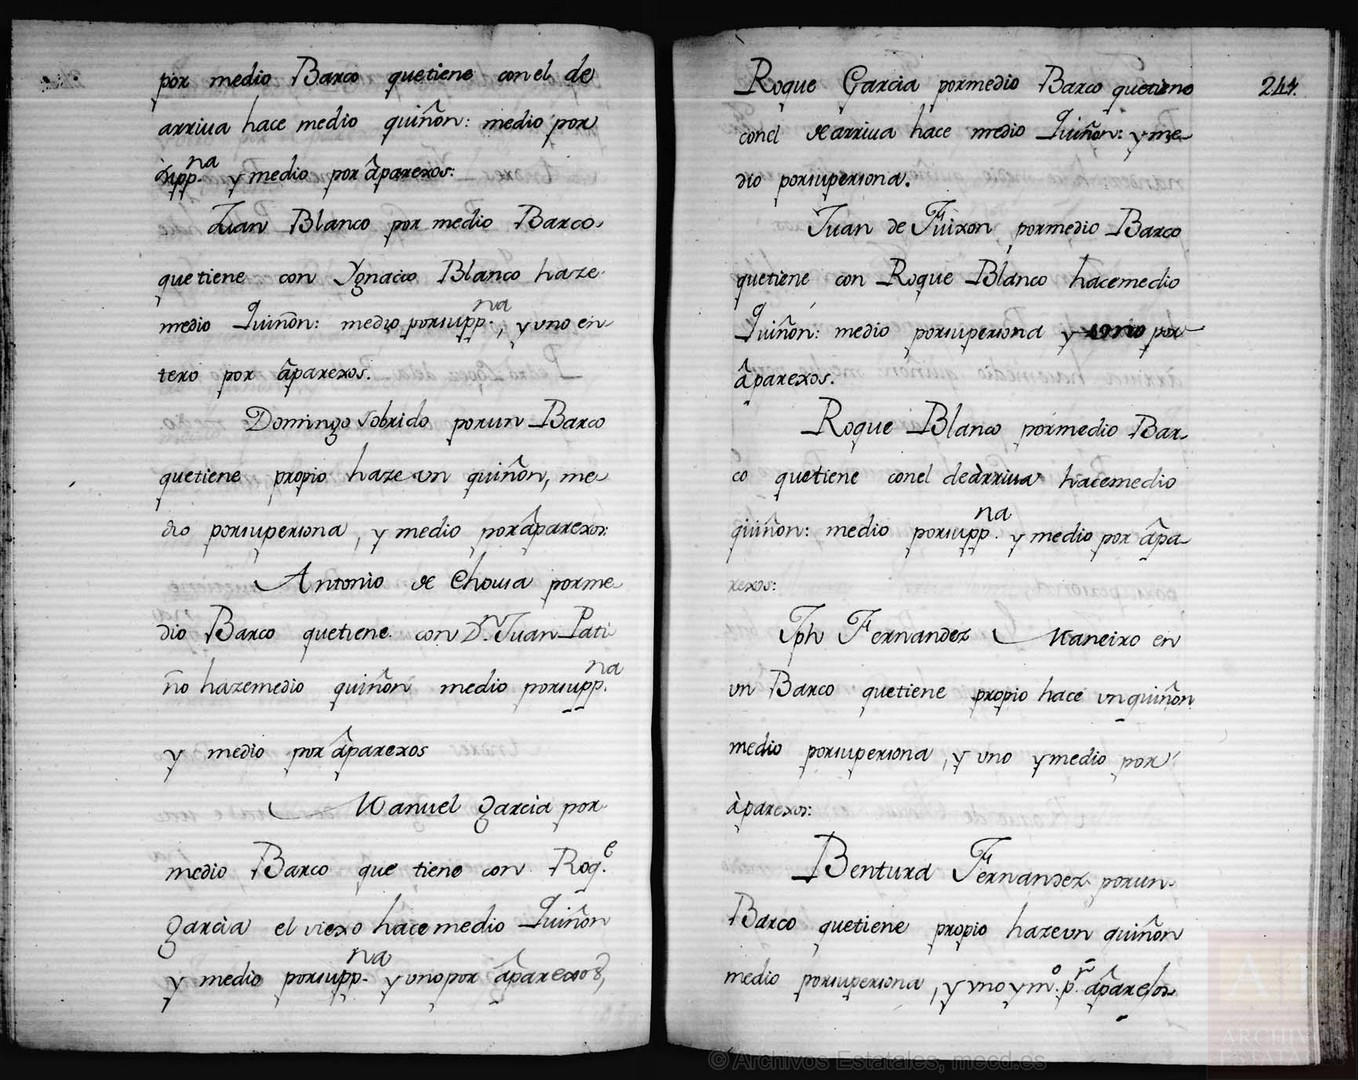 por medio Barco quetiene conel de
arriua hace medio quiñon: medio por
supp.na y medio por âparexos:
Juan Blanco por medio Barco
quetiene con Ygnacio Blanco haze
medio Quiñon: medio porsupp.na, y uno en
tero por âparexos.
Domingo Sobrido porun Barco
quetiene propio haze un quiñon, me
dio porsupersona, y medio porâparexos:
Antonio de Chousa porme
dio Barco quetiene con Dn. Juan Pati
ño hazemedio quiñon medio porsupp.na
y medio por âparexos
Manuel Garcia por
medio Barco que tiene con Roq.e
Garcia el viexo hace medio Quiñon
y medio porsupp.na y uno por âparexos,
244.
Roque Garcia pormedio Barco quetiene
conel dearriua hace medio Quiñon: y me
dio porsupersona.
Juan de Fuixon, pormedio Barco
quetiene con Roque Blanco hacemedio
Quiñon: medio porsupersona y por
âparexos.
Roque Blanco pormedio Bar
co quetiene conel deàrriua hacemedio
quiñon: medio porsupp.na y medio por âpa
rexos:
Jph Fernandez Maneiro en
vn Barco quetiene propio hace unquiñon
medio porsupersona, y uno ymedio por
àparexos:
Bentura Fernandez porun
Barco quetiene propio hazeun quiñon
medio porsupersona, y vno y m.o p.r âparexos
© Archivos Estatales, mecd.es
ARCHIVOS
ESTATALES